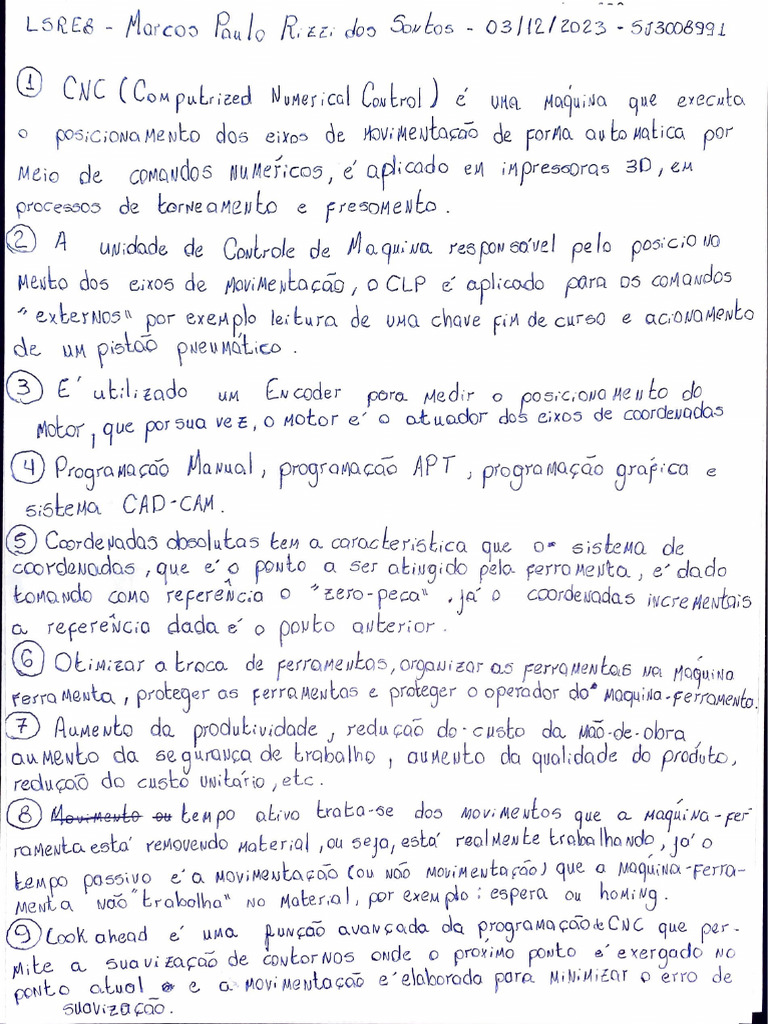 LSRE8 - Marcos Paulo Rizzi dos Santos - 03/12/2023 - SJ3008991
① CNC (Computrized Numerical Control) é uma máquina que executa
o posicionamento dos eixos de movimentação de forma automatica por
meio de comandos numéricos, é aplicado em impressoras 3D, em
processos de torneamento e fresamento.
② A unidade de Controle de Maquina responsável pelo posiciona
mento dos eixos de movimentação, o CLP é aplicado para os comandos
"externos" por exemplo leitura de uma chave fim de curso e acionamento
de um pistão pneumático.
③ É utilizado um Encoder para medir o posicionamento do
motor, que por sua vez, o motor é o atuador dos eixos de coordenadas
④ Programação Manual, programação APT, programação gráfica e
sistema CAD-CAM.
⑤ Coordenadas absolutas tem a caracteristica que o sistema de
coordenadas, que é o ponto a ser atingido pela ferramenta, é dado
tomando como referência o "zero-peça", já o coordenadas incrementais
a referência dada é o ponto anterior.
⑥ Otimizar a troca de ferramentas, organizar as ferramentas na máquina
ferramenta, proteger as ferramentas e proteger o operador da maquina-ferramenta.
⑦ Aumento da produtividade, redução do custo da mão-de-obra,
aumento da segurança de trabalho, aumento da qualidade do produto,
redução do custo unitário, etc.
⑧ Movimento ou tempo ativo trata-se dos movimentos que a maquina-fer
ramenta está removendo material, ou seja, está realmente trabalhando, já o
tempo passivo é a movimentação (ou não movimentação) que a maquina-ferra-
menta não "trabalha" no material, por exemplo: espera ou homing.
⑨ Look ahead é uma função avançada da programação de CNC que per-
mite a suavização de contornos onde o próximo ponto é exergado no
ponto atual e a movimentação é elaborada para minimizar o erro de
suavização.